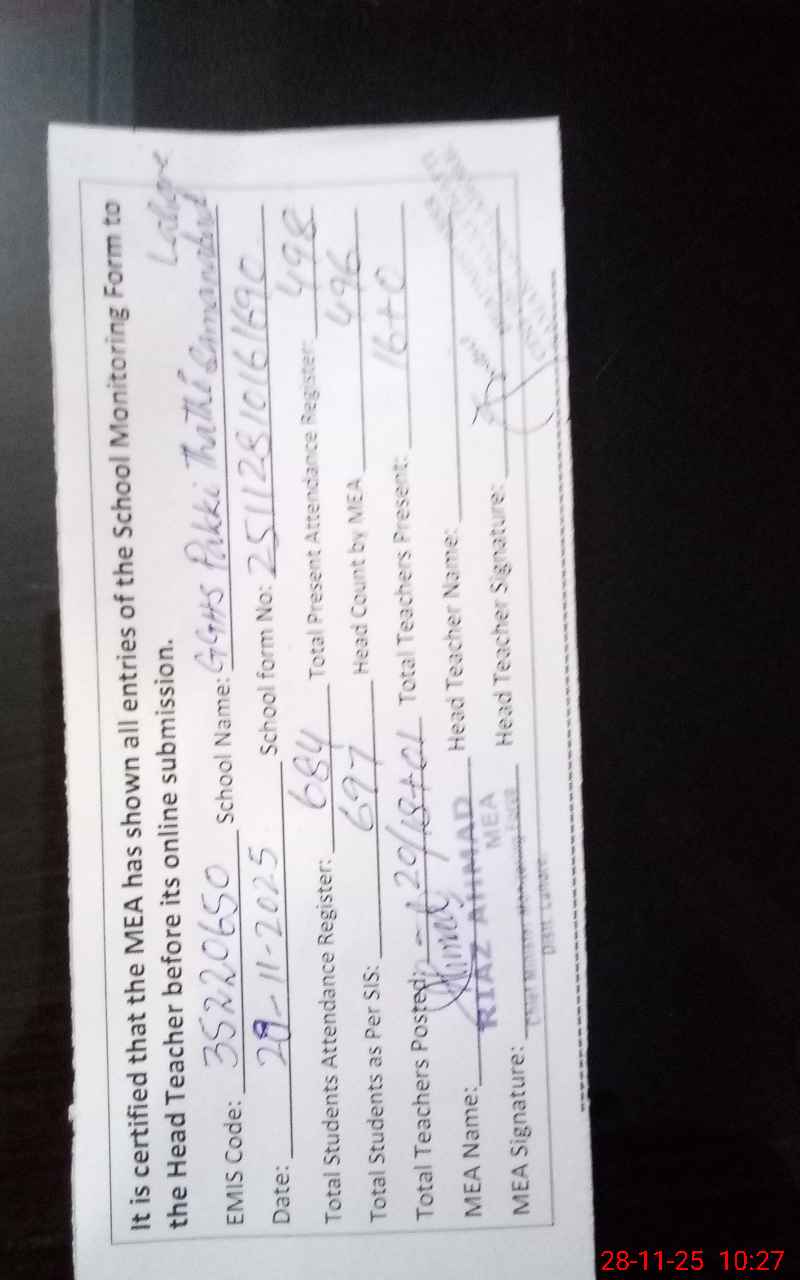 It is certified that the MEA has shown all entries of the School Monitoring Form to
the Head Teacher before its online submission.
Lahore
EMIS Code: 35220650 School Name: GGHS Pakki Thathi Samanabad
Date: 28-11-2025 School form No: 25112810161690
Total Students Attendance Register: 684 Total Present Attendance Register: 498
Total Students as Per SIS: 697 Head Count by MEA 496
Total Teachers Posted: 20/18+01 Total Teachers Present: 16+0
MEA Name: RIAZ AHMAD Head Teacher Name:
MEA
MEA Signature: Head Teacher Signature:
Chief Minister Monitoring Force
Distt. Lahore
28-11-25 10:27